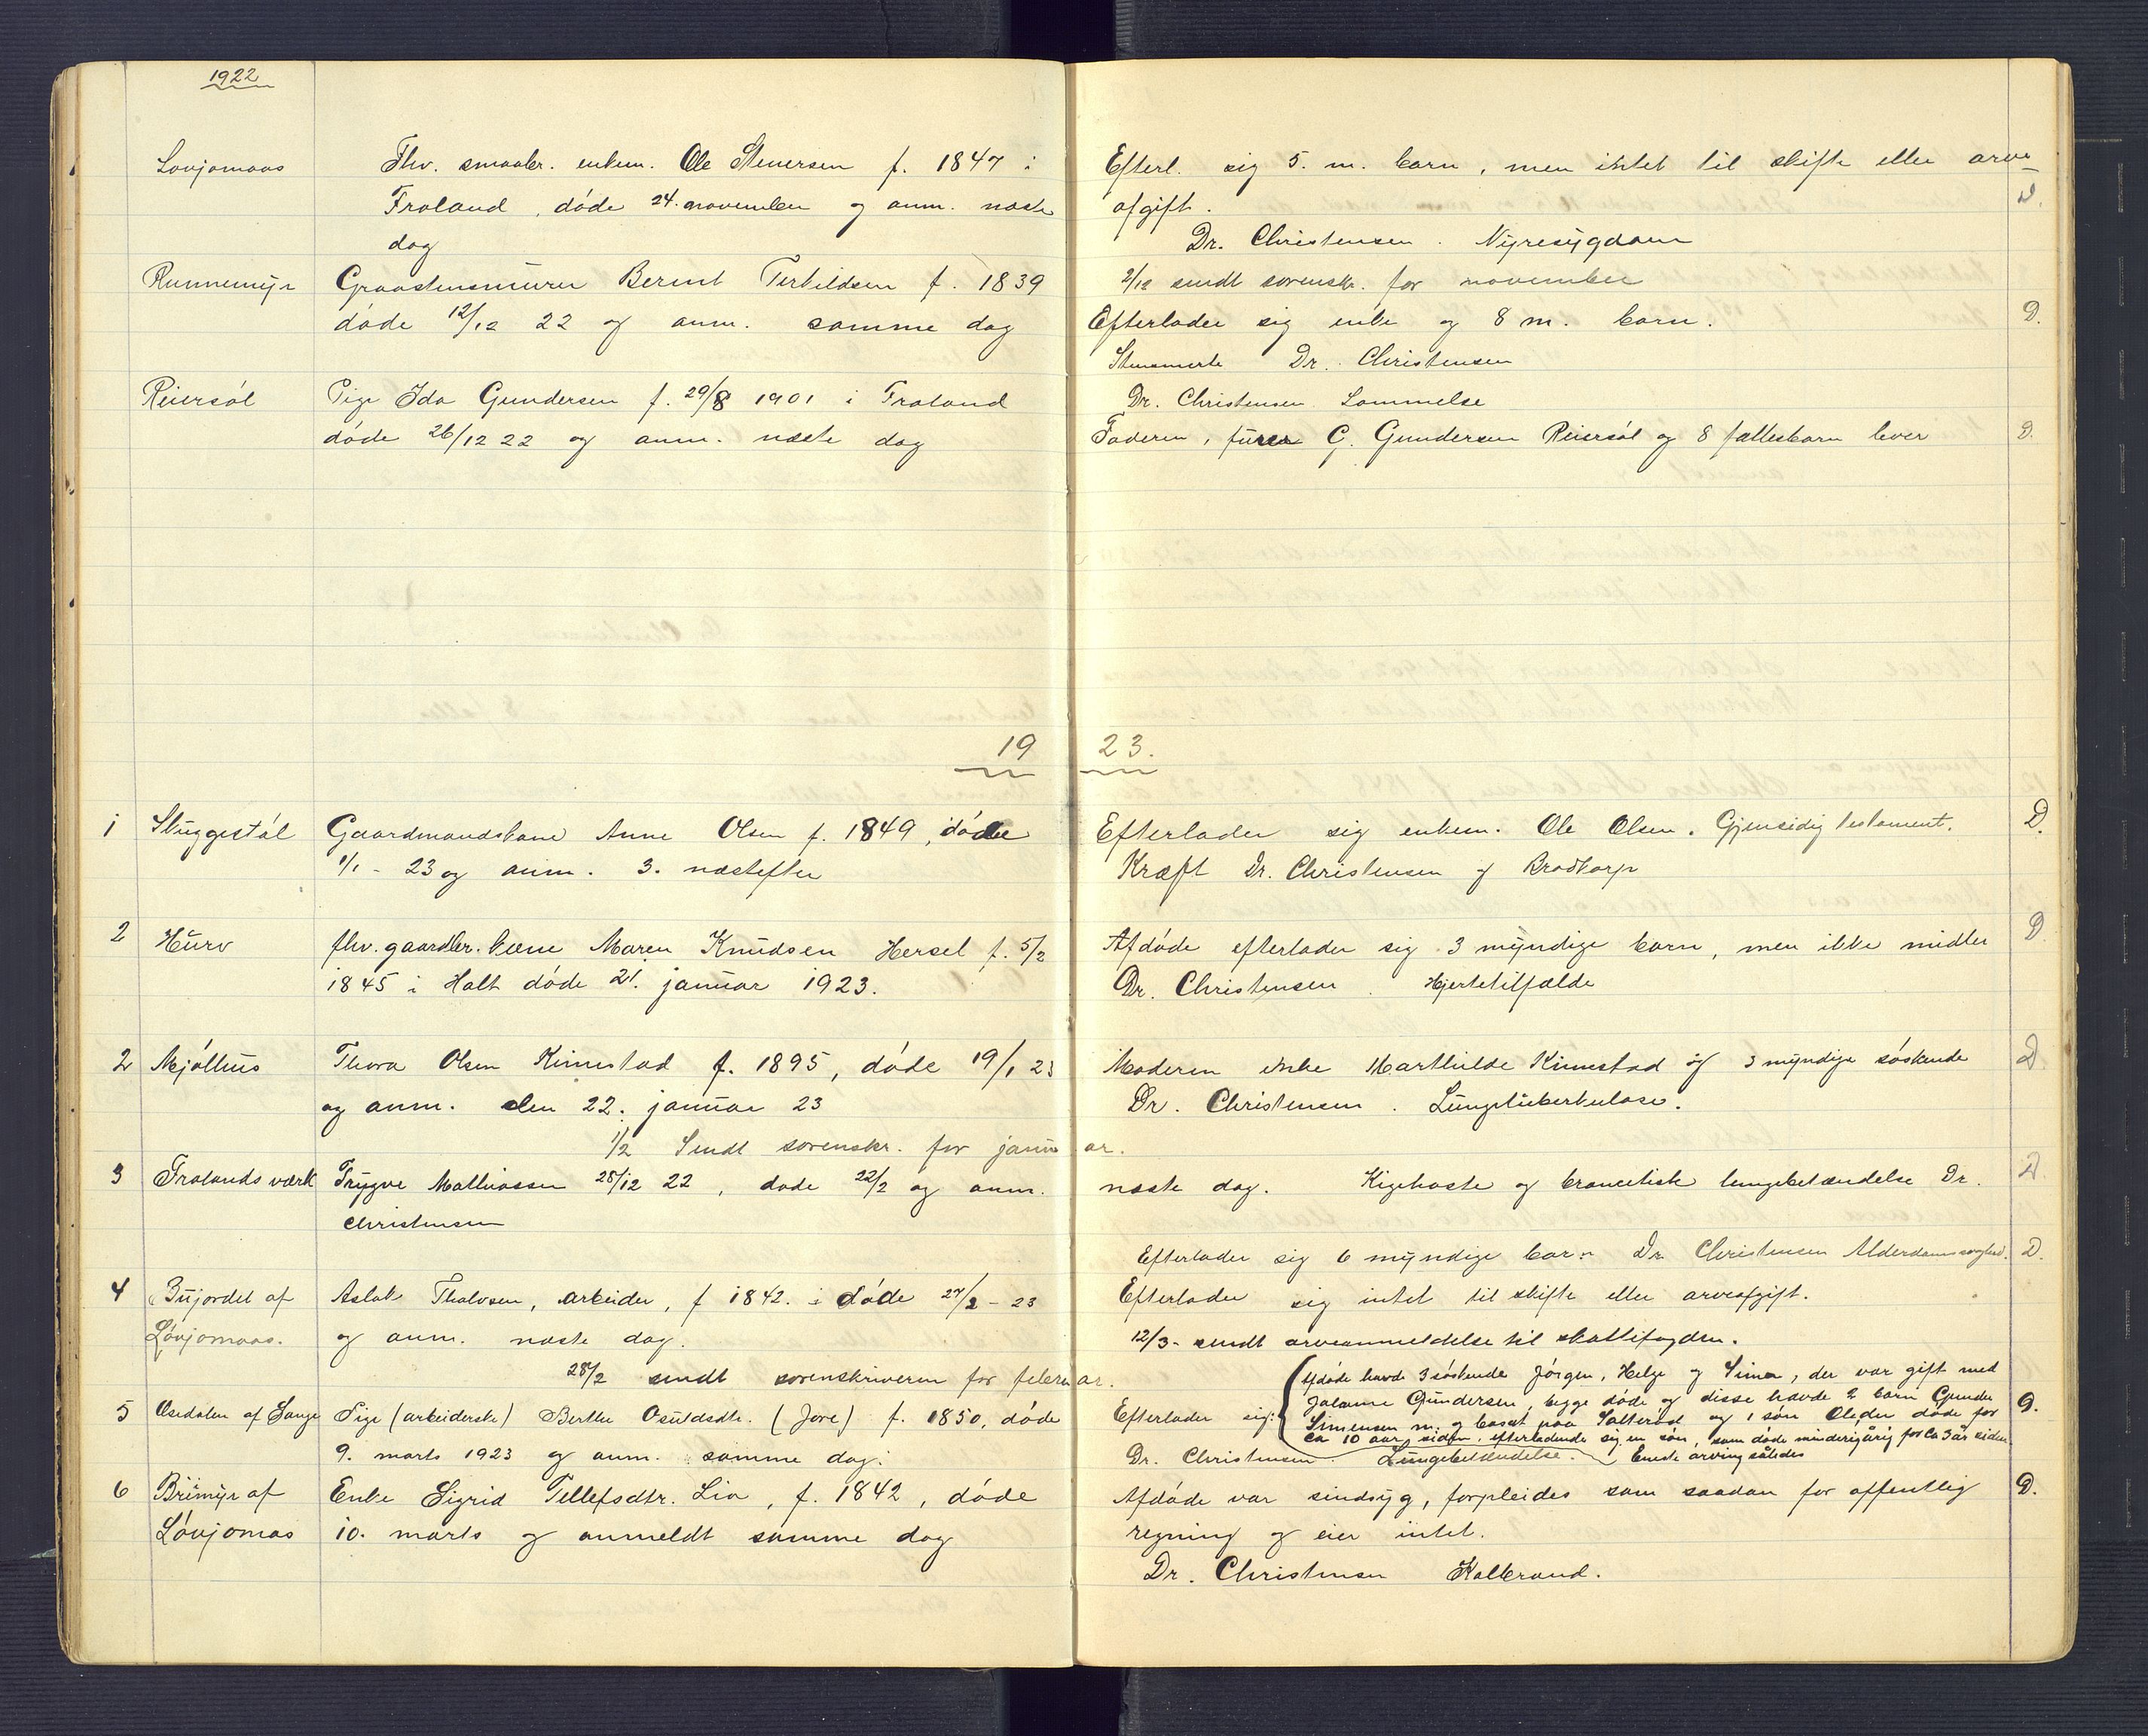 1922
Lovjomaas Fhv. smaabr. enkem. Ole Stenersen f. 1847 i Efterl. sig 5. m. barn, men intet til skifte eller arve-
Froland, døde 24. november og anm. næste afgift. D.
dag Dr. Christensen. Nyresygdom
Runnemyr Graastensmurer Bernt Terkildsen f. 1839 2/12 sendt sorenskr. for november
døde 12/12 22 og anm. samme dag Efterlader sig enke og 8 m. barn. D.
Dr. Christensen
Reiersøl Pige Ida Gundersen f. 29/8 1901 i Froland Dr. Christensen Lammelse
døde 26/12 22 og anm. næste dag Faderen, G. Gundersen Reiersøl og 8 fællesbarn lever D.
1923.
1 Stuggestøl Gaardmandskone Anne Olsen f. 1849, døde Efterlader sig enkem. Ole Olsen. Gjensidig testament. D.
1/1 - 23 og anm. 3. næstefter Kræft Dr. Christensen og Brodtkorp
2 Hurv fhv. gaardbr. kone Maren Knudsen Hersel f. 5/2 Afdøde efterlader sig 3 myndige barn, men ikke midler D
1845 i Holt døde 21. januar 1923. Dr. Christensen. Hjertetilfælde
2 Mjølhus Thora Olsen Kimestad f. 1895, døde 19/1 23 Moderen enke Marthilde Kimestad og 3 myndige søskende D
og anm. den 22. januar 23 Dr. Christensen. Lungetuberkulose.
1/2 Sendt sorenskr. for januar.
3 Frolands værk Trygve Mathiassen 28/12 22, døde 22/2 og anm. næste dag. Kighoste og broncitisk lungebetændelse Dr. D.
Christensen
Efterlader sig 6 myndige barn Dr. Christensen Alderdomssvaghed. D.
4 Bujordet af Aslak Thalvsen, arbeider, f 1842. i døde 27/2 - 23 Efterlader sig intet til skifte eller arveafgift.
Løvjomaas. og anm. næste dag. 12/3 - sendt arveanmeldelse til skattefogden.
28/2 sendt sorenskriveren for februar.
Afdøde havde 3 søskende Jørgen, Helge og Sina, der var gift med
5 Osedalen af Songe Pige (arbeiderske) Berthe Osuldsdtr. (Jore) f. 1850, døde Efterlader sig: Gundersen, begge døde og disse havde 2 barn Gunder D.
Simensen m. og bosat paa Salterød og 1 søn Ole, der døde for
ca 10 aar siden, efterladende sig en søn, som døde minderigårig for ca 3 år siden
9. marts 1923 og anm. samme dag. Dr. Christensen. Lungebetændelse. Eneste arving således
6 Brimyr af Enke Sigrid Tellefsdtr. Lia, f. 1842, døde Afdøde var sindsyg, forpleides som saadan for offentlig D.
Løvjomas 10. marts og anmeldt samme dag regning og eier intet.
Dr. Christensen Kolbrand.